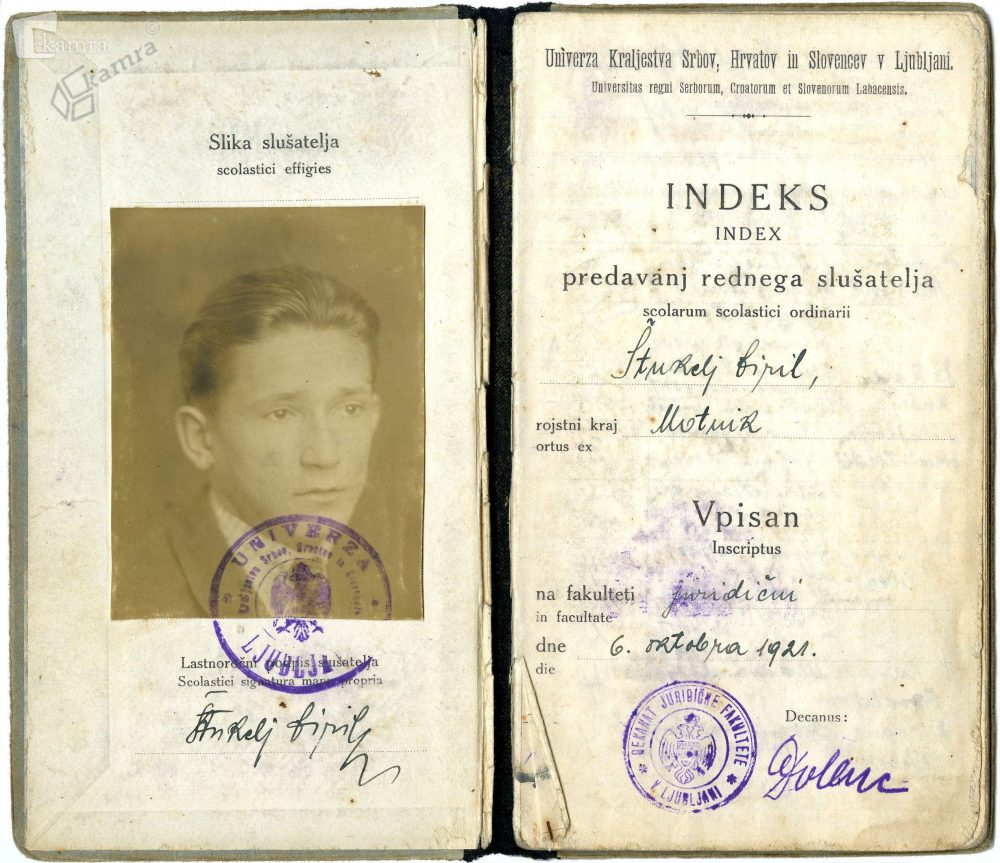 kamra
kamra
©
Slika slušatelja
scolastici effigies
UNIVERZA
Kraljestva Srbov, Hrvatov in Slovencev
LJUBLJANI
Lastnoročni podpis slušatelja
Scolastici signatura manu propria
Štukelj Ciril
Univerza Kraljestva Srbov, Hrvatov in Slovencev v Ljubljani.
Universitas regni Serborum, Croatorum et Slovenorum Labacensis.
INDEKS
INDEX
predavanj rednega slušatelja
scolarum scolastici ordinarii
Štukelj Ciril,
rojstni kraj Motnik
ortus ex
Vpisan
Inscriptus
na fakulteti juridični
in facultate
dne 6. oktobra 1921.
die
DEKANAT JURIDIČKE FAKULTETE
V LJUBLJANI
Decanus:
Dolenc